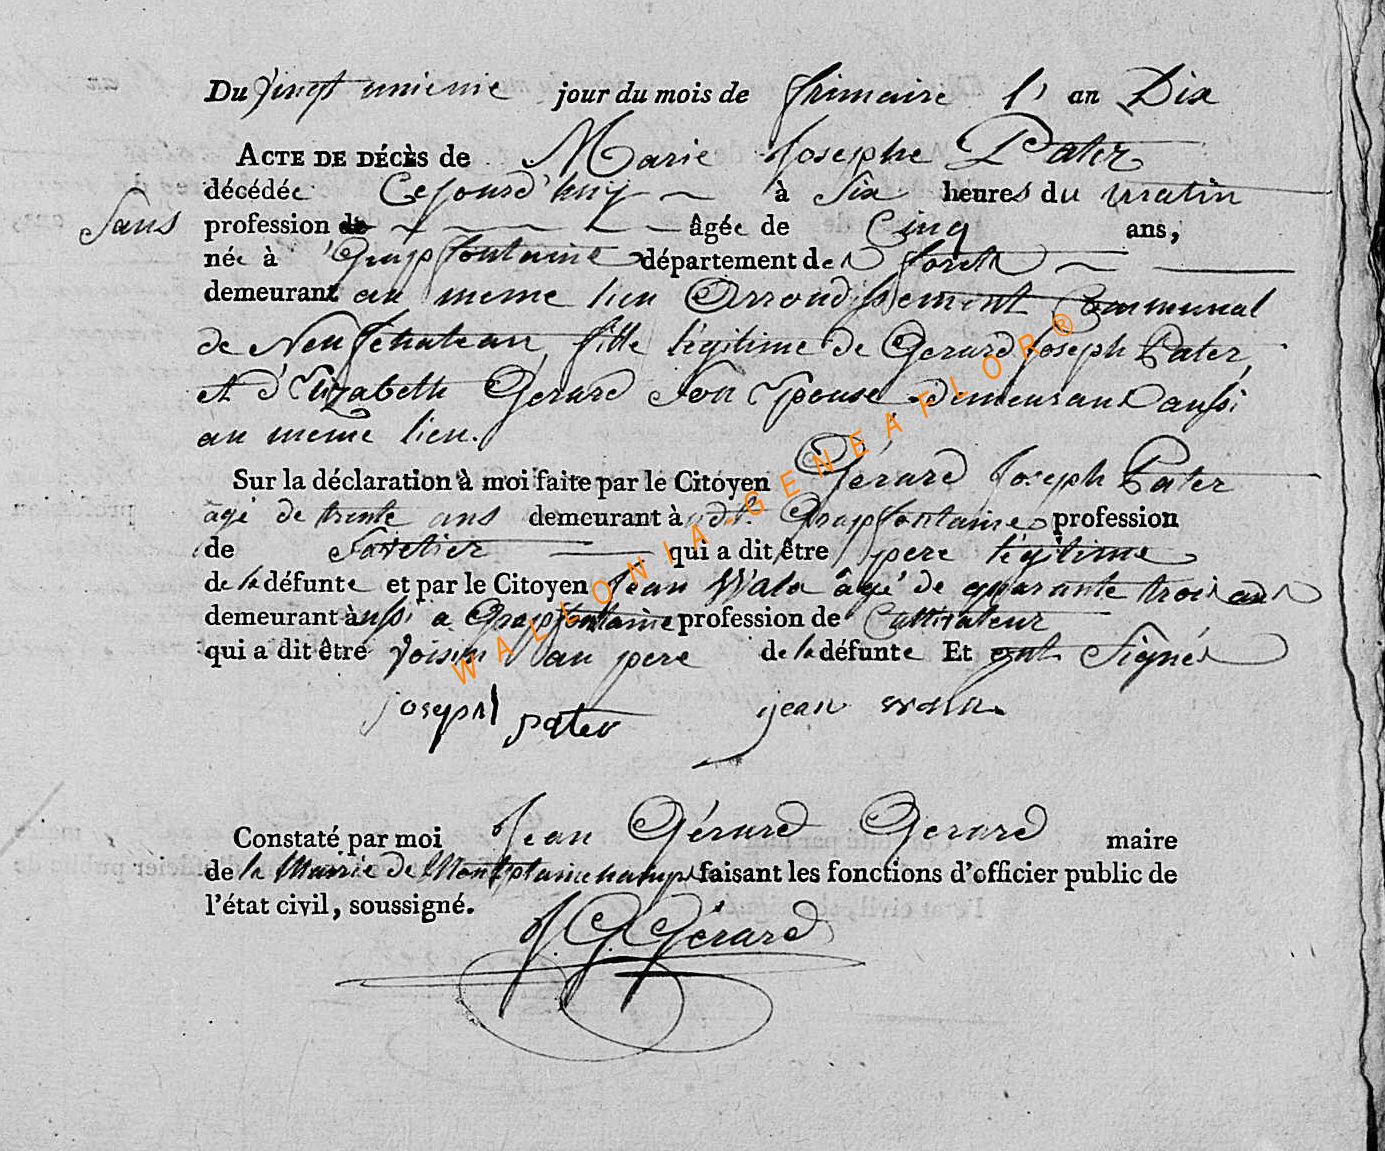 Du vingt unieme jour du mois de frimaire l' an Dix
ACTE DE DÉCÈS de Marie Josephe Pater
décédée Cejourd'huy à Six heures du matin
Sans profession de âgée de Cinq ans,
née à Grapfontaine département des forets
demeurant au meme lieu Arrondissement Communal
de Neufchateau, fille légitime de Gerard Joseph Pater,
et d'Elizabeth Gerard Son Epouse, demeurant aussi
au meme lieu.
Sur la déclaration à moi faite par le Citoyen Gérard Joseph Pater
agé de trente ans demeurant à dt. Grapfontaine profession
de Savetier qui a dit être pere légitime
de la défunte et par le Citoyen Jean Wala âgé de quarante trois ans
demeurant aussi a Grapfontaine profession de Cultivateur
qui a dit être Voisin au pere de la défunte Et ont Signés
joseph pater jean wala.
Constaté par moi Jean Gérard Gerard maire
de la Mairie de Montplainchamps faisant les fonctions d'officier public de
l'état civil, soussigné.
J G Gérard
WALLONIA-GENEAFLOR®